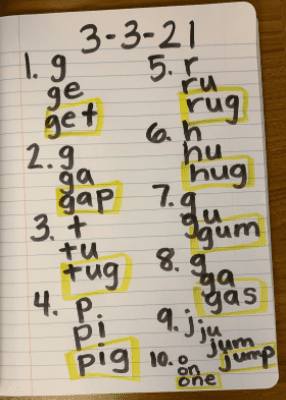 3-3-21
1. g
ge
get
2. g
ga
gap
3. t
tu
tug
4. p
pi
pig
5. r
ru
rug
6. h
hu
hug
7. g
gu
gum
8. g
ga
gas
9. j
ju
jum
jump
10. o
on
one